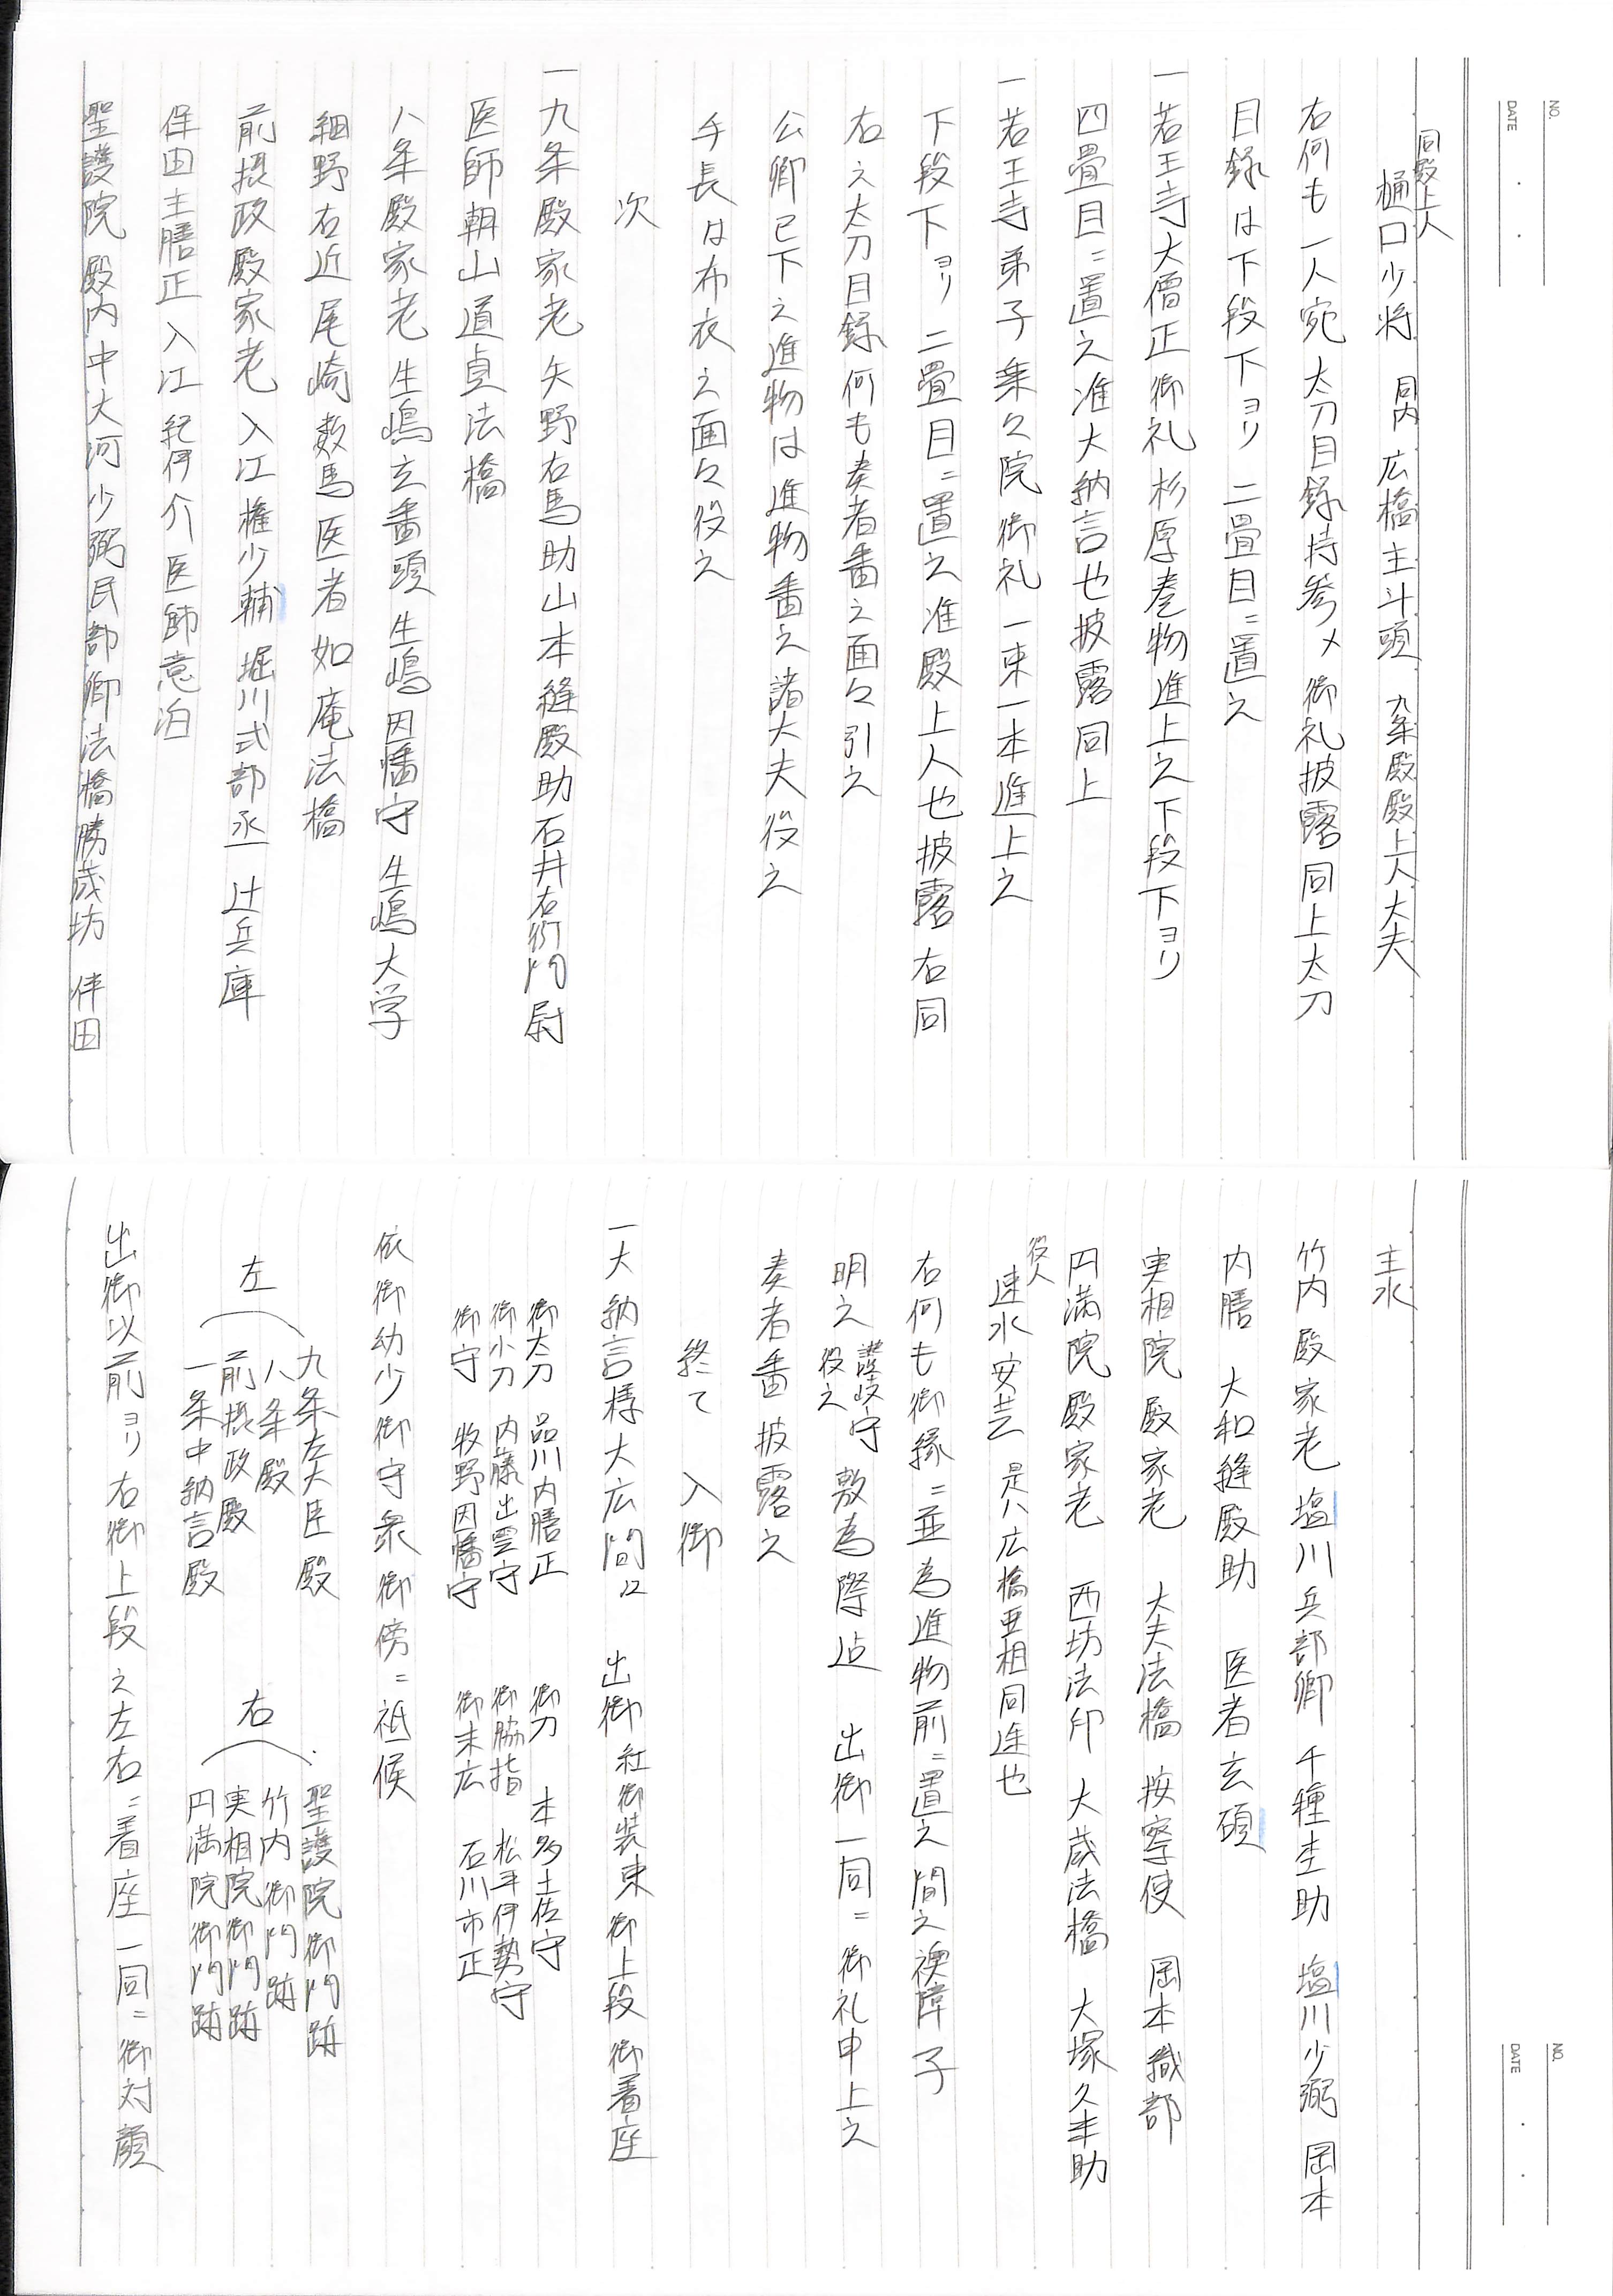 NO.
DATE
同殿上人
樋口少将 同内 広橋主斗頭 九条殿殿上人大夫
右何も一人宛太刀目録持参〆御礼披露同上太刀
目録は下段下ヨリ二畳目ニ置之
一若王寺大僧正御礼杉原巻物進上之下段下ヨリ
四畳目ニ置之准大納言也披露同上
一若王寺弟子乗久院御礼一束一本進上之
下段下ヨリ二畳目ニ置之准殿上人也披露右同
右之太刀目録何も奏者番之面々引之
公卿已下之進物は進物番之諸大夫役之
手長は布衣之面々役之
次
一九条殿家老矢野右馬助山本縫殿助石井右衛門尉
医師朝山道貞法橋
八条殿家老生嶋玄番頭生嶋因幡守生嶋大学
細野右近尾崎数馬医者如庵法橋
前摂政殿家老入江権少輔堀川式部丞辻兵庫
保田主膳正入江紀伊介医師意泊
聖護院殿内中大河少弼民部卿法橋勝蔵坊伴田
NO.
DATE
主水
竹内殿家老塩川兵部卿千種杢助塩川少弼岡本
内膳 大和縫殿助 医者玄碩
実相院殿家老 大夫法橋 按察使 岡本織部
円満院殿家老 西坊法印 大蔵法橋 大塚久米助
役人
速水安芸 是ハ広橋亜相同途也
右何も御縁ニ並為進物前ニ置之間之襖障子
明之 讃岐守役之 敷為際迠 出御一同ニ御礼申上之
奏者番披露之
終て 入御
一大納言様大広間江 出御 紅御装束御上段御着座
御太刀 品川内膳正 御刀 本多土佐守
御小刀 内藤出雲守 御脇指 松平伊勢守
御守 牧野因幡守 御末広 石川市正
依御幼少御守衆御傍ニ祗候
左 右
九条左大臣殿 聖護院御門跡
八条殿 竹内御門跡
前摂政殿 実相院御門跡
一条中納言殿 円満院御門跡
出御以前ヨリ右御上段之左右ニ着座一同ニ御対顔